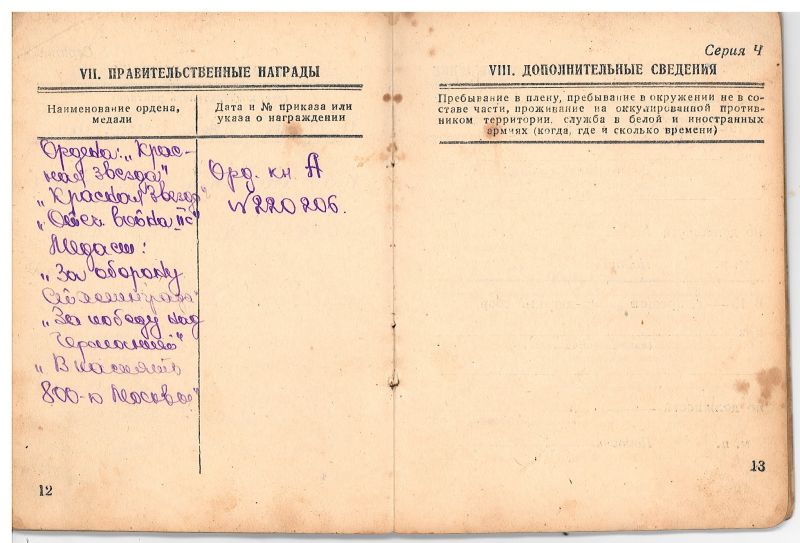 VII. ПРАВИТЕЛЬСТВЕННЫЕ НАГРАДЫ
Наименование ордена,
медали
Дата и № приказа или
указа о награждении
Ордена: „Крас-
ная звезда"
„Красная Звезд"
„Отеч война IIс"
Медали:
„За оборону
Сталинграда"
„За победу над
Германией"
„В память
800-ю Москвы"
Орд. кн. А
№220206.
12
Серия Ч
VIII. ДОПОЛНИТЕЛЬНЫЕ СВЕДЕНИЯ
Пребывание в плену, пребывание в окружении не в со-
ставе части, проживание на оккупированной против-
ником территории, служба в белой и иностранных
армиях (когда, где и сколько времени)
13